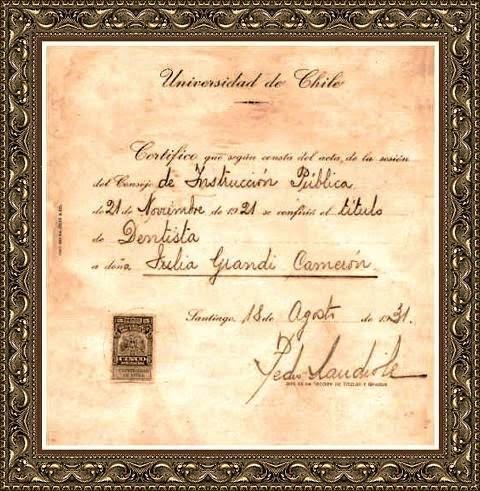 Universidad de Chile
Certifico que según consta del acta, de la sesión
del Consejo de Instrucción Pública
de 21 de Noviembre de 1921 se confirió el título
de Dentista
a doña Julia Grandi Camerón
Santiago, 18 de Agosto de 1931.
Pedro
JEFE DE LA SECCIÓN DE TÍTULOS Y GRADOS
CINCO